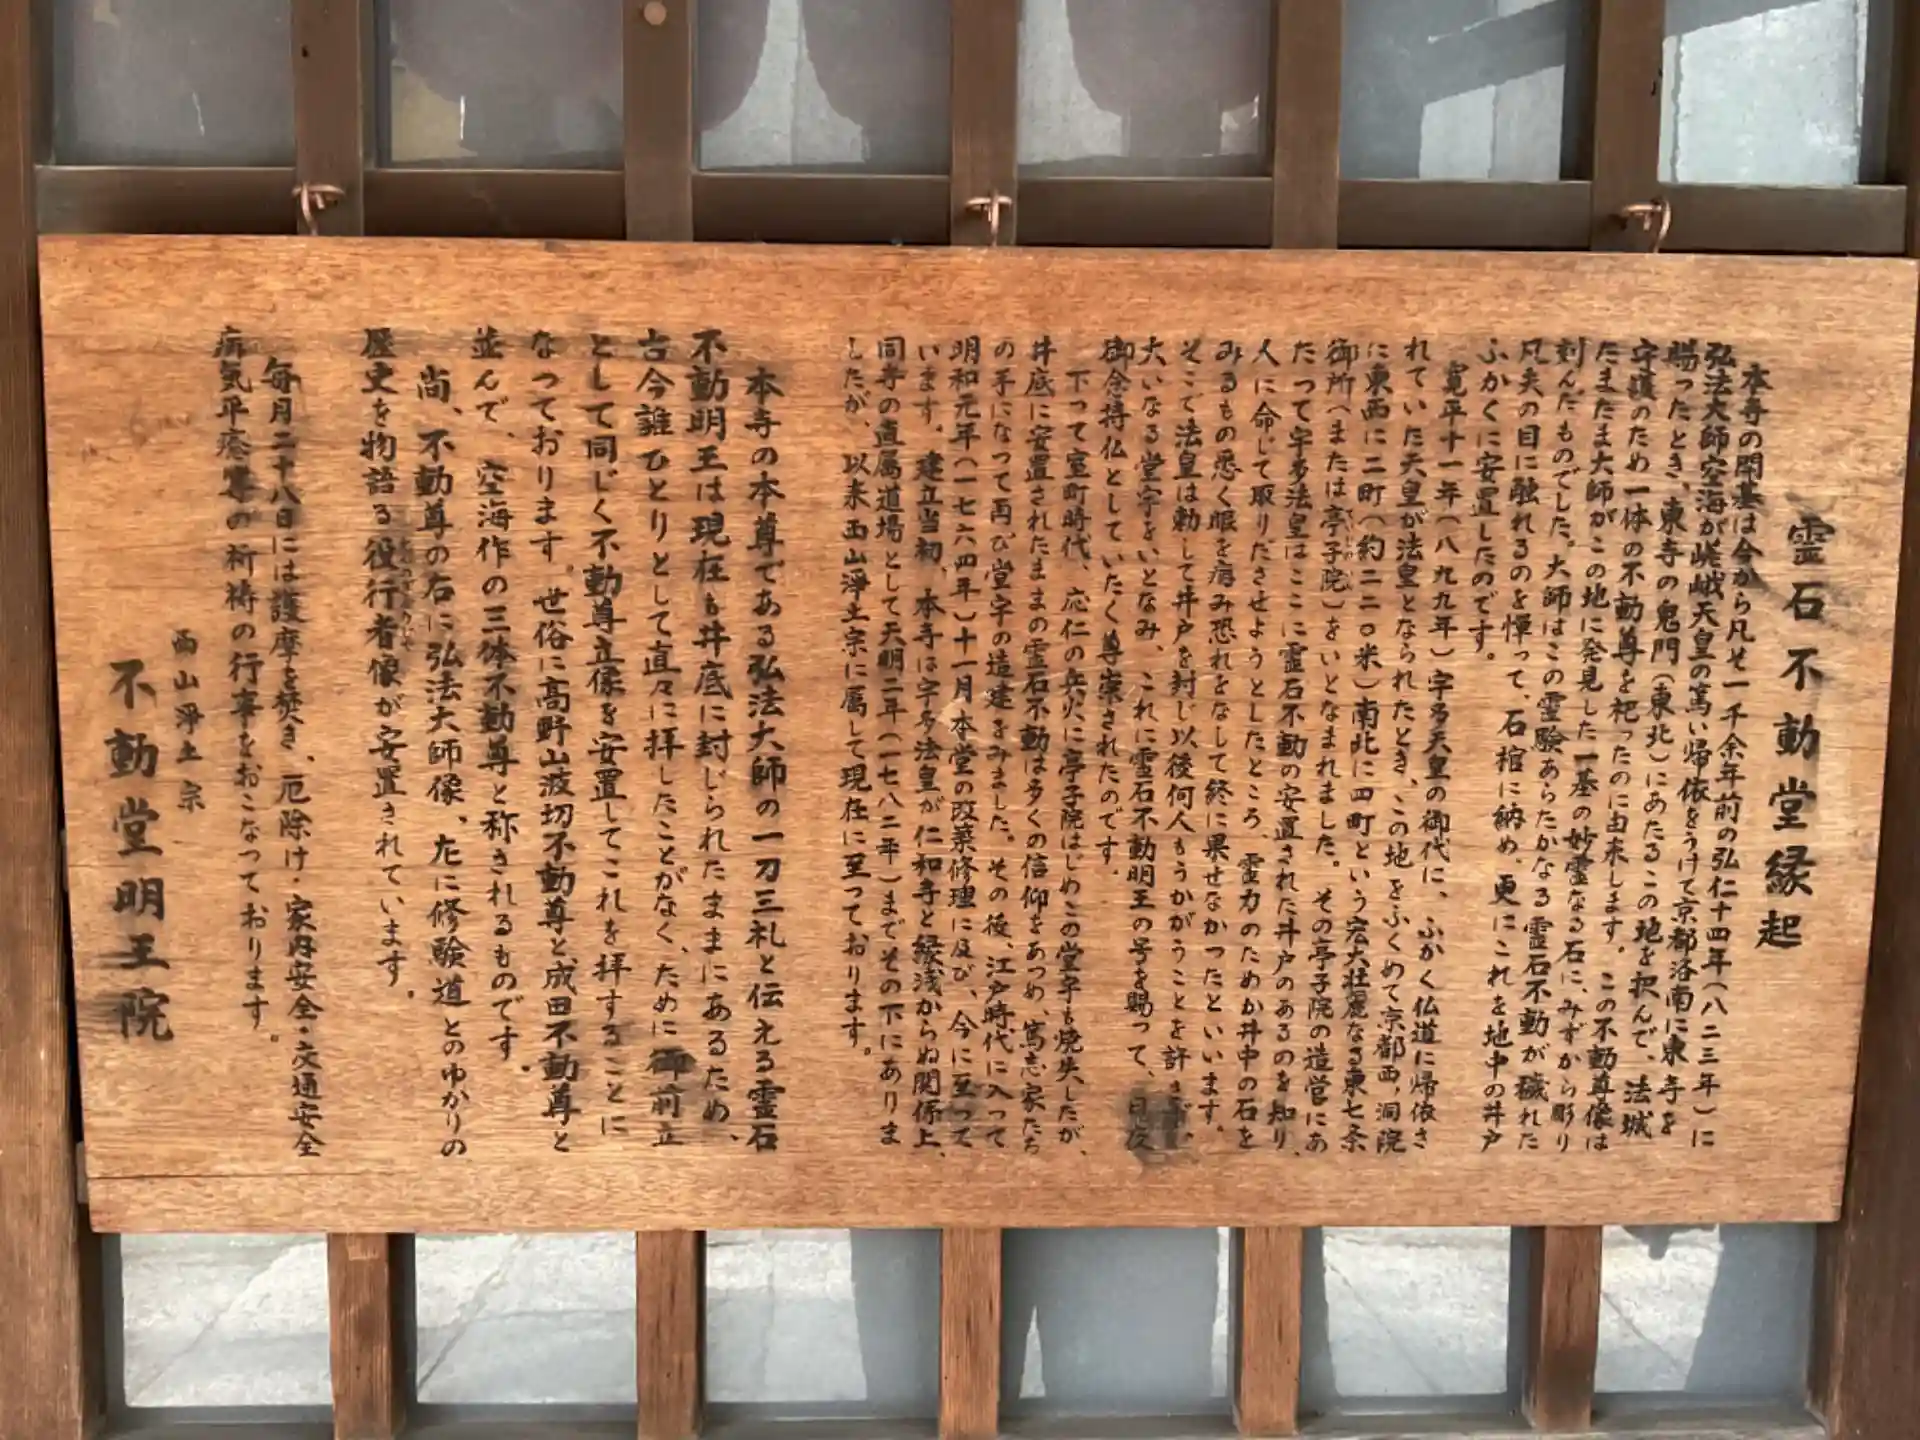 霊石不動堂縁起
本寺の開基は今から凡そ一千余年前の弘仁十四年(八二三年)に
弘法大師空海が嵯峨天皇の篤い帰依をうけて京都洛南に東寺を
賜ったとき、東寺の鬼門(東北)にあたるこの地を択んで、法城
守護のため一体の不動尊を祀ったのに由来します。この不動尊像は
たまたま大師がこの地に発見した一基の妙霊なる石に、みずから彫り
刻んだものでした。大師はこの霊験あらたかなる霊石不動が穢れた
凡夫の目に融れるのを憚って、石棺に納め、更にこれを地中の井戸
ふかくに安置したのです。
寛平十一年(八九九年)宇多天皇の御代に、ふかく仏道に帰依さ
れていた天皇が法皇となられたとき、この地をふくめて京都西洞院
に東西に二町(約二二〇米)南北に四町という宏大壮麗なる東七条
御所(または亭子院)をいとなまれました。その亭子院の造営にあ
たって宇多法皇はここに霊石不動の安置された井戸のあるのを知り、
人に命じて取りださせようとしたところ、霊力のためか井中の石を
みるもの悉く眼を病み恐れをなして終に果せなかったといいます。
そこで法皇は勅して井戸を封じ以後何人もうかがうことを許さず、
大いなる堂宇をいとなみ、これに霊石不動明王の号を賜って、日夜
御念持仏としていたく尊崇されたのです。
下って室町時代、応仁の兵火に亭子院はじめこの堂宇も焼失したが、
井底に安置されたままの霊石不動は多くの信仰をあつめ、篤志家たち
の手になって再び堂宇の造建をみました。その後、江戸時代に入って
明和元年(一七六四年)十一月本堂の改築修理に及び、今に至って
います。建立当初、本寺は宇多法皇が仁和寺と縁浅からぬ関係上、
同寺の直属道場として天明二年(一七八二年)までその下にありま
したが、以来西山浄土宗に属して現在に至っております。
本寺の本尊である弘法大師の一刀三礼と伝える霊石
不動明王は現在も井底に封じられたままにあるため、
古今誰ひとりとして直々に拝したことがなく、ために御前立
として同じく不動尊立像を安置してこれを拝することに
なっております。世俗に高野山波切不動尊と成田不動尊と
並んで、空海作の三体不動尊と称されるものです。
尚、不動尊の右に弘法大師像、左に修験道とのゆかりの
歴史を物語る役行者像が安置されています。
毎月二十八日には護摩を焚き、厄除け・家内安全・交通安全
病気平癒等の祈祷の行事をおこなっております。
西山浄土宗
不動堂明王院